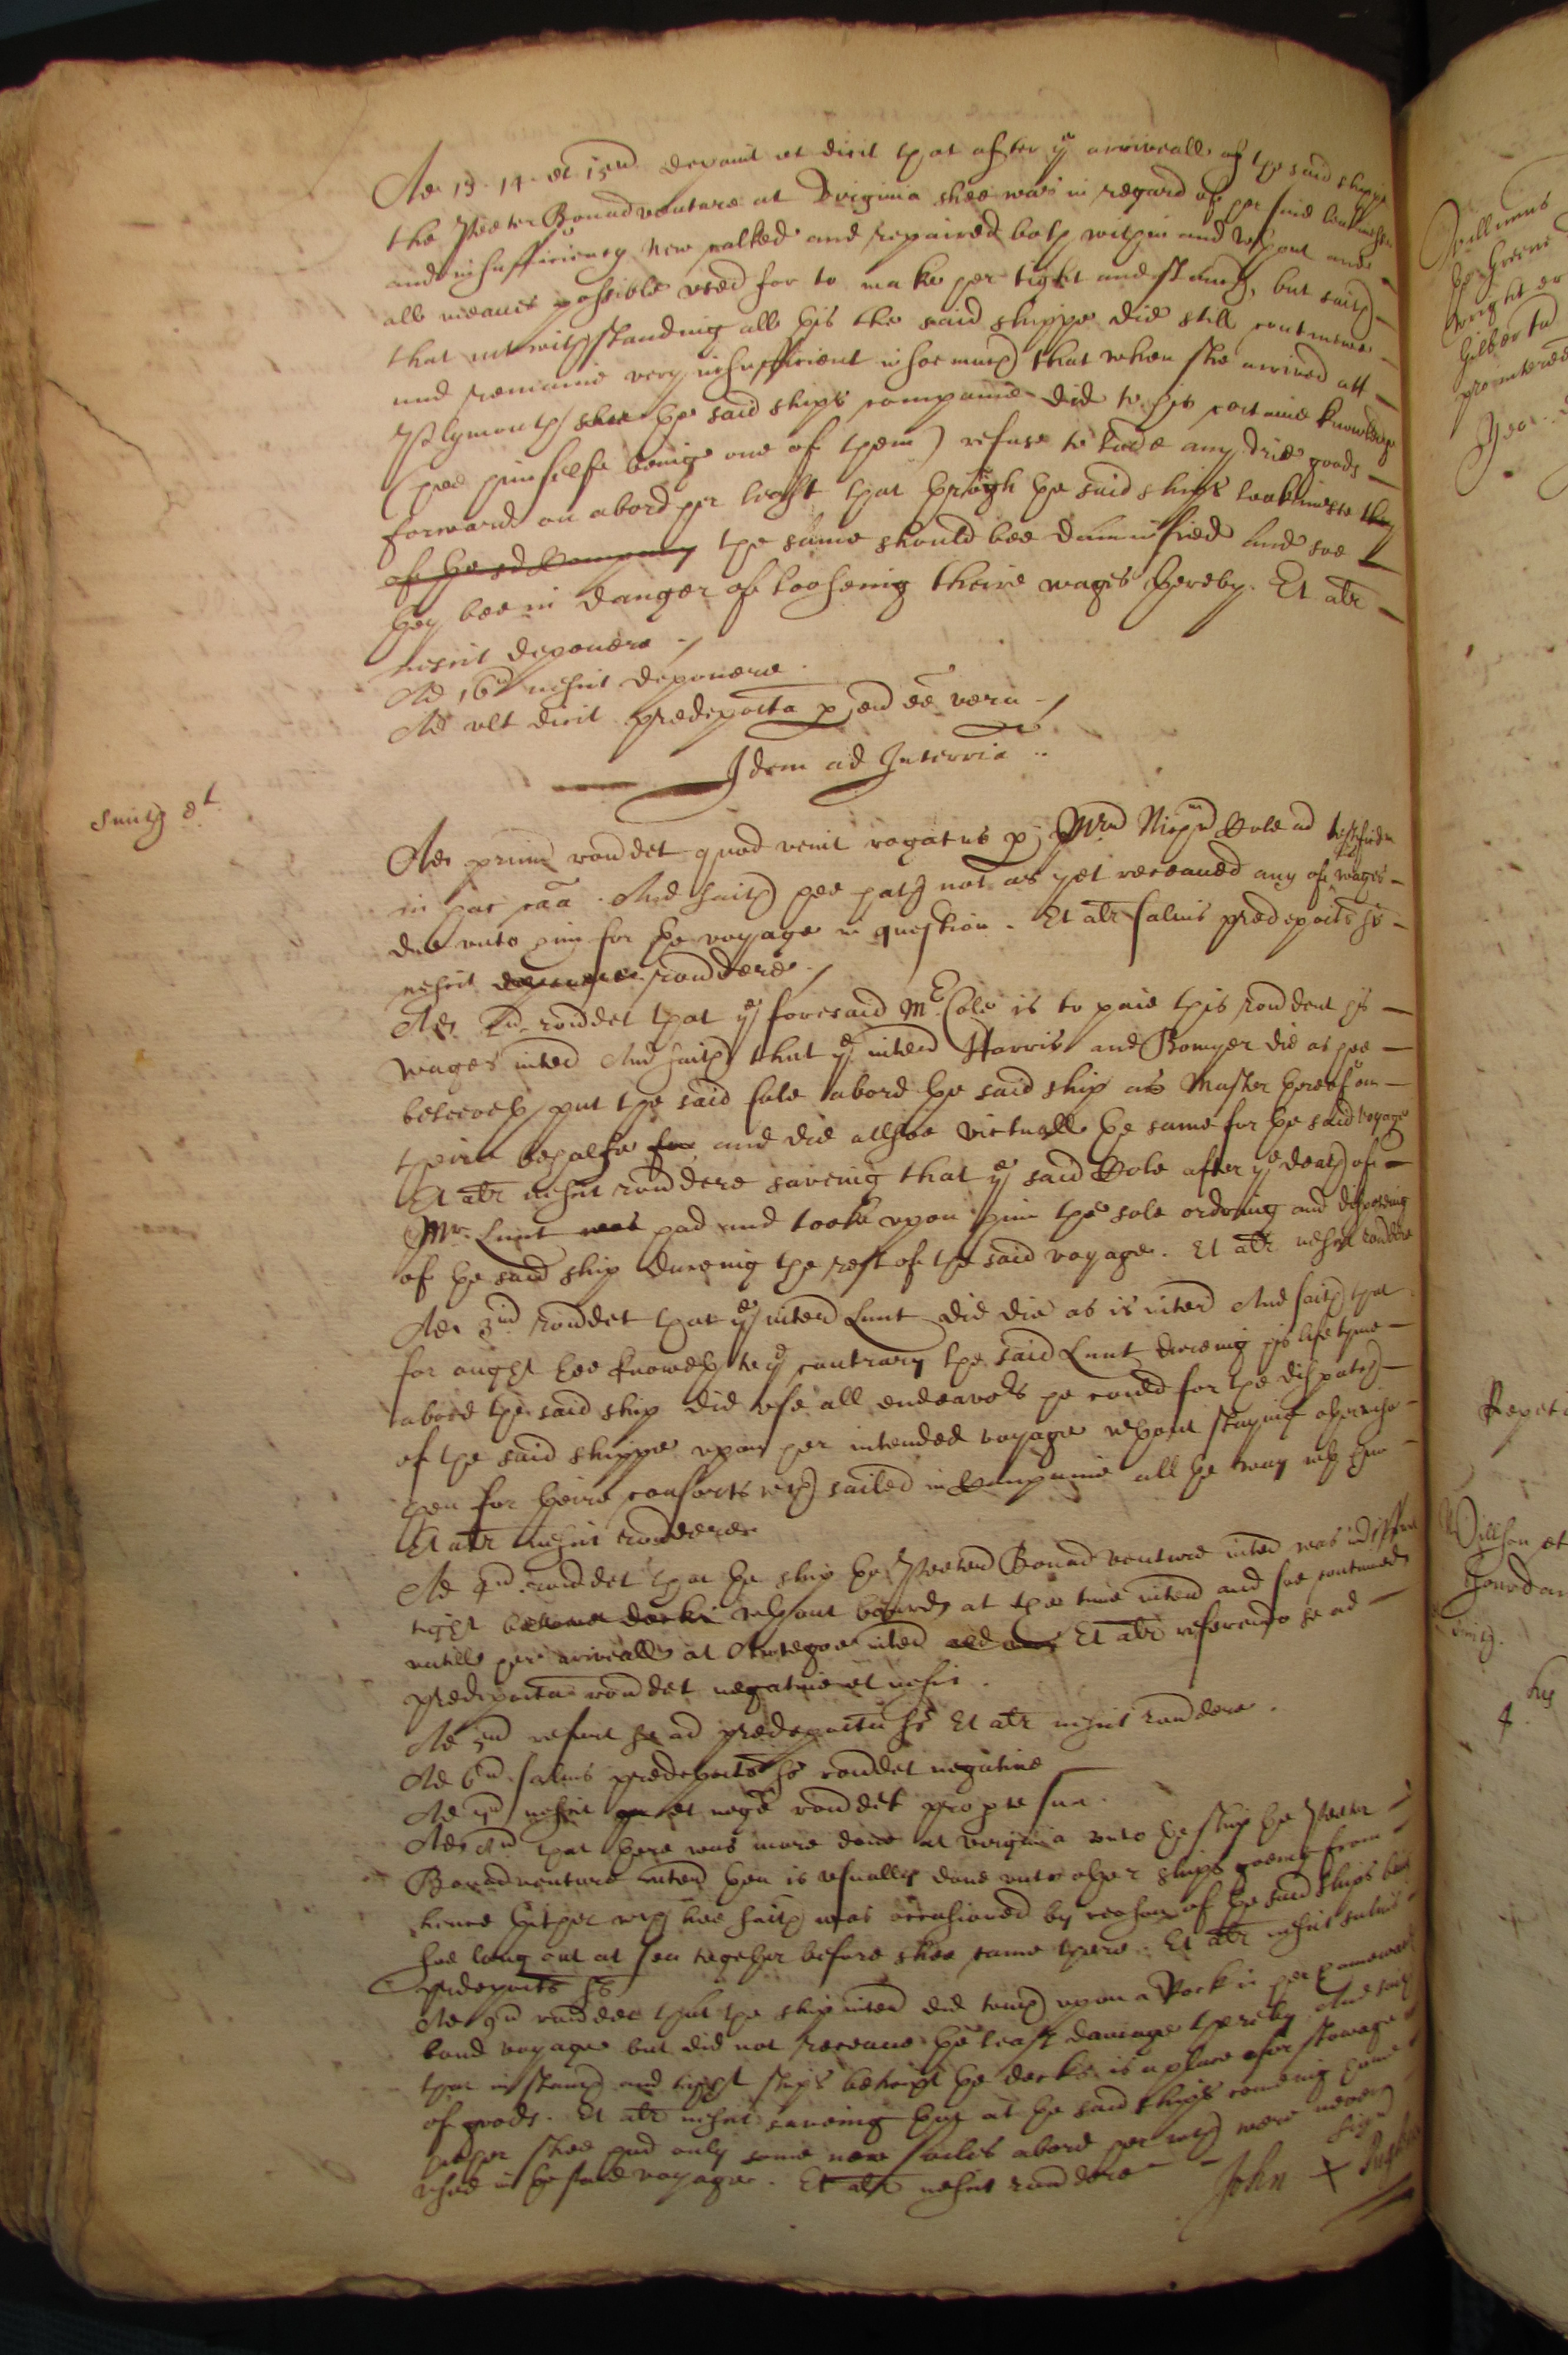 Ad 13. 14. et 15um deponit et dicit that after ye arriveall of the said shippe
the Peeter Bonadventure at Virginia shee was in regard of her said leakinesse
and insufficiency new calked and repaired both within and without and
all meanes possible used for to make her tight and stanch, but saith
that notwithstanding all this the said shippe did still continewe
and remaine very insufficient insoemuch that when she arrived att
Plymouth shee the said ships companie did to his certaine knowledge
(hee himselfe being one of them) refuse to take any drie goods
forward on abord her least that through the said ships leakinesse they
of the sd Company the same should bee damnified and soe
they bee in danger of looseing theire wages thereby. Et alr
nescit deponere
Ad 16um nescit deponere.
Ad ult dicit predeposita p eu ee vera
Idem ad Interria
Smith dt.
Ad primu rondet quod venit rogatus p Mrum Nichum Cole ad testificdu
in hac caa. And saith hee hath not as yet received any of his wages
due unto him for the voyage in question. Et alr salvis predepoitis se
nescit deponere rondere
Ad 2um rondet that ye foresaid Mr Cole is to paie this rondent his
wages interd And saith that ye interd Harris and Bowyer did as hee
beleeveth put the said Cole abord the said ship as Master thereof on
theire behalfe for and did allsoe victuall the same for the said voyage
Et alr nescit rondere saveing that ye said Cole after ye death of
Mr. Lunt was had and tooke upon him the sole ordring and disposeing
of the said ship dureing the rest of the said voyage. Et alr nescit rondere
Ad 3um rondet that ye interd Lunt did die as is interd And saith that
for ought hee knoweth to ye contrary the said Lunt dureing his life tyme
abord the said ship did use all endeavors he could for the dispatch
of the said shippe upon her intended voyage without staying otherwise
then for theire consorts wch sailed in Companie all the way wth them
Et alr nescit rondere
Ad 4um rondet that the ship the Peeter Bonadventure interd was indifferent
tight betweene decks without board at the time interd and soe continued
untill her arriveall at Antegoe interd and Et alr referendo se ad
predeposita rondet negative et nescit.
Ad 5um refert se ad predeposita sua Et alr nescit rondere.
Ad 6um salvis predepoitis suis rondet negative
Ad 7um nescit et negve rondet pro pte sua.
Ad 8um that there was more done at Virginia unto the ship the Peeter
Bonadventure interd then is usually done unto other ships goeing from
hence thither wch hee saith was occasioned by reason of the said ships being
soe long out at sea together before shee came there. Et alr nescit salvis
predepoitis suis
Ad 9um rondet that the ship interd did touch upon a Rock in her homeward
bound voyage but did not receave the least damage thereby And saith
that in stanch and tight ships betwixt the decks is a place for stowage
of goods. Et alr nescit saveing that at the said ships comeing home
hither shee had only some new sailes abord her wch were never
used in the said voyage. Et alr nescit rondere
signu
John X
Willson et
Repet